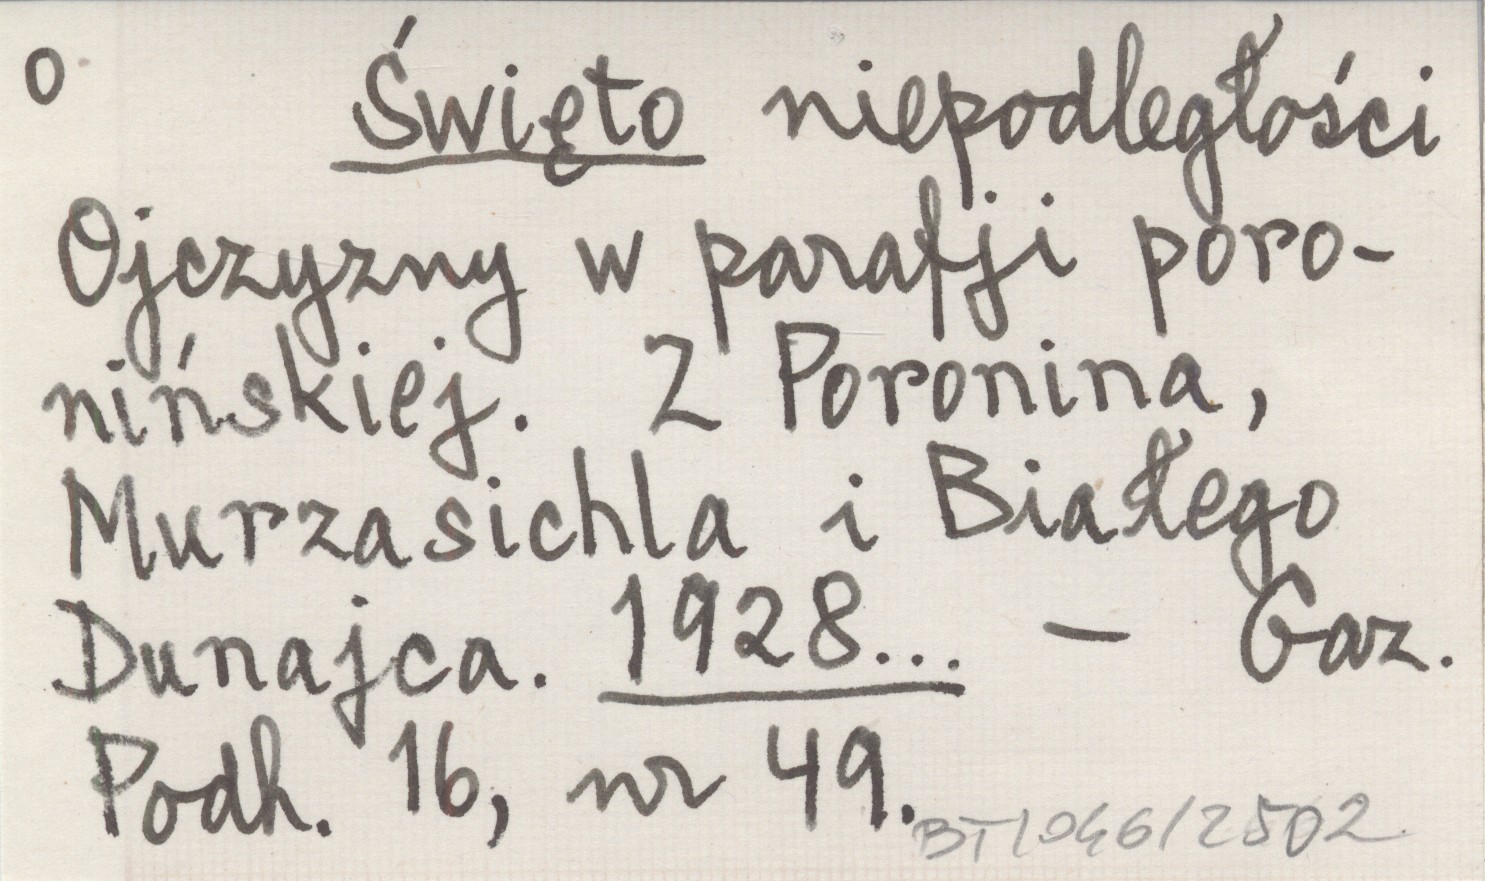 o Święto niepodległości
Ojczyzny w parafji poro-
nińskiej. Z Poronina,
Murzasichla i Białego
Dunajca. 1928... — Gaz.
Podh. 16, nr 49.
BT/046/2502